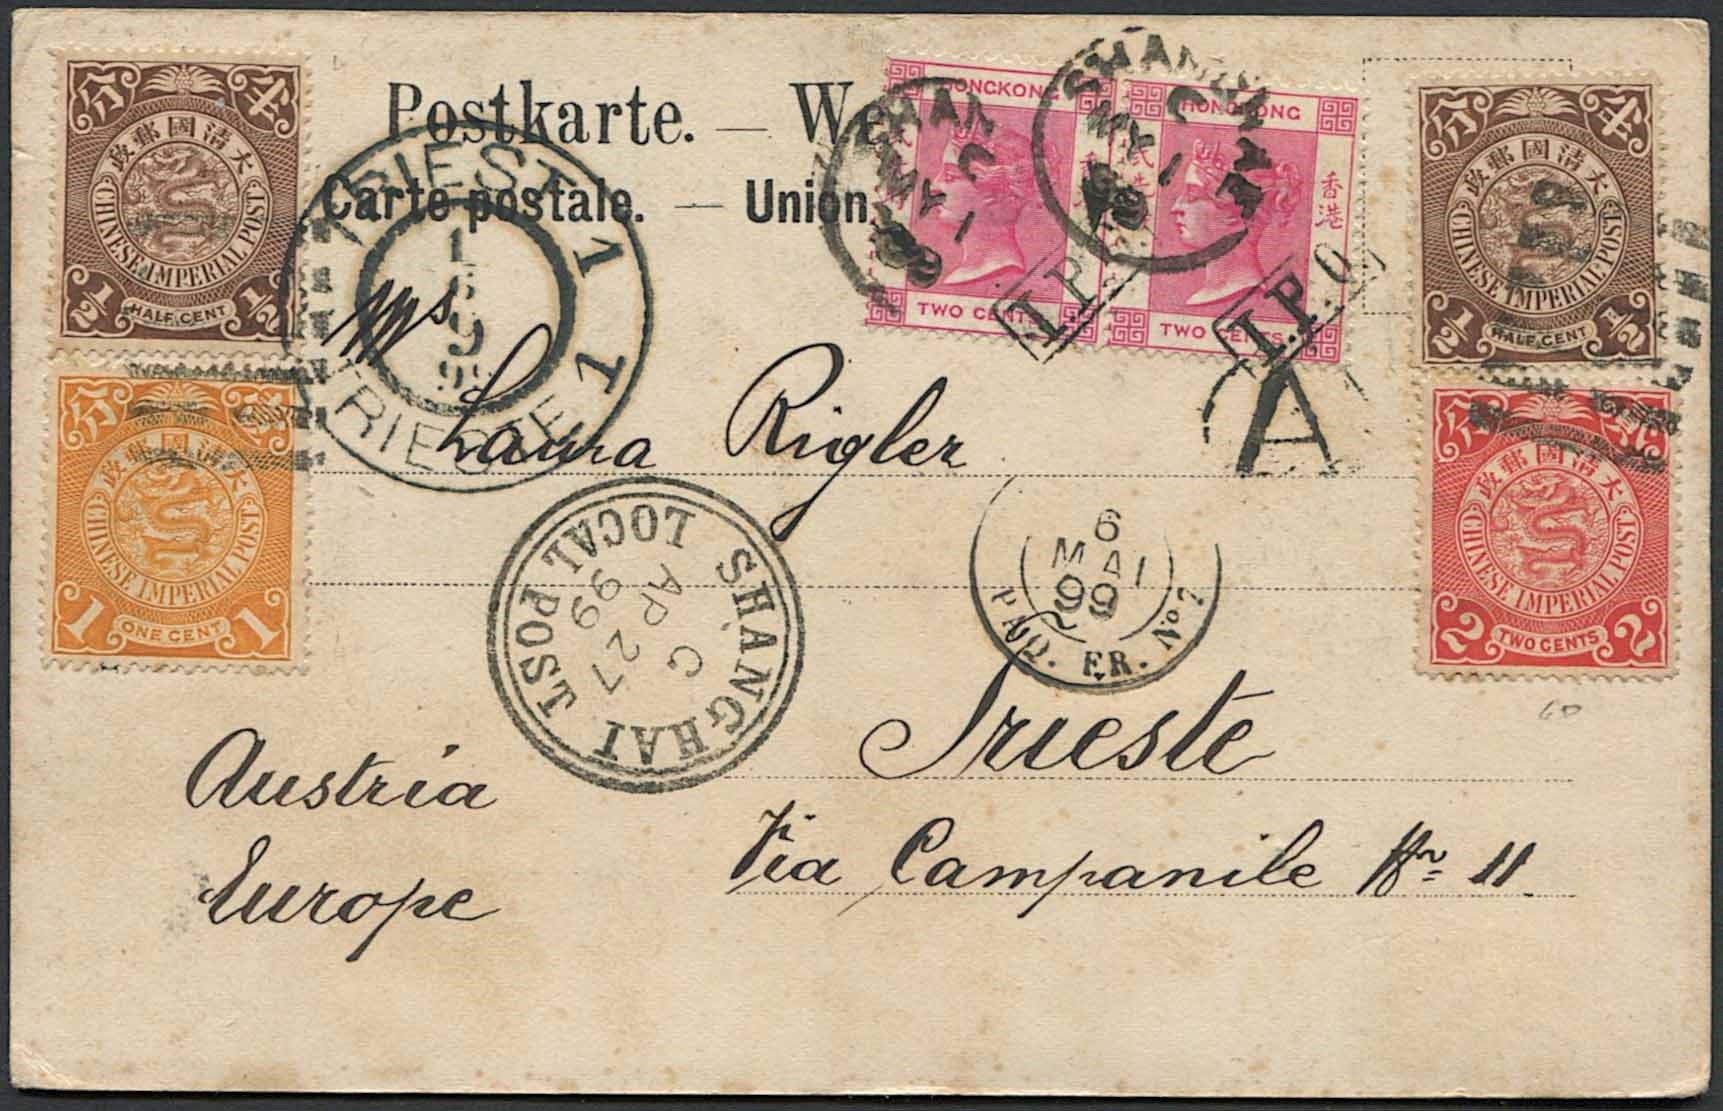 Postkarte. —
Carte postale. — Union
Mrs Laura Rigler
Trieste
Via Campanile Nr 11
Austria
Europe
大清國郵政
CHINESE IMPERIAL POST
½ HALF CENT ½
大清國郵政
CHINESE IMPERIAL POST
1 ONE CENT 1
HONGKONG
TWO CENTS
HONGKONG
香港
TWO CENTS
大清國郵政
CHINESE IMPERIAL POST
½ HALF CENT ½
大清國郵政
CHINESE IMPERIAL POST
2 TWO CENTS 2
TRIEST 1
TRIESTE 1
SHANGHAI
LOCAL POST
G
AP 27
99
MY 1
I.P.O.
A
6
MAI
99
PAQ. FR. No 7